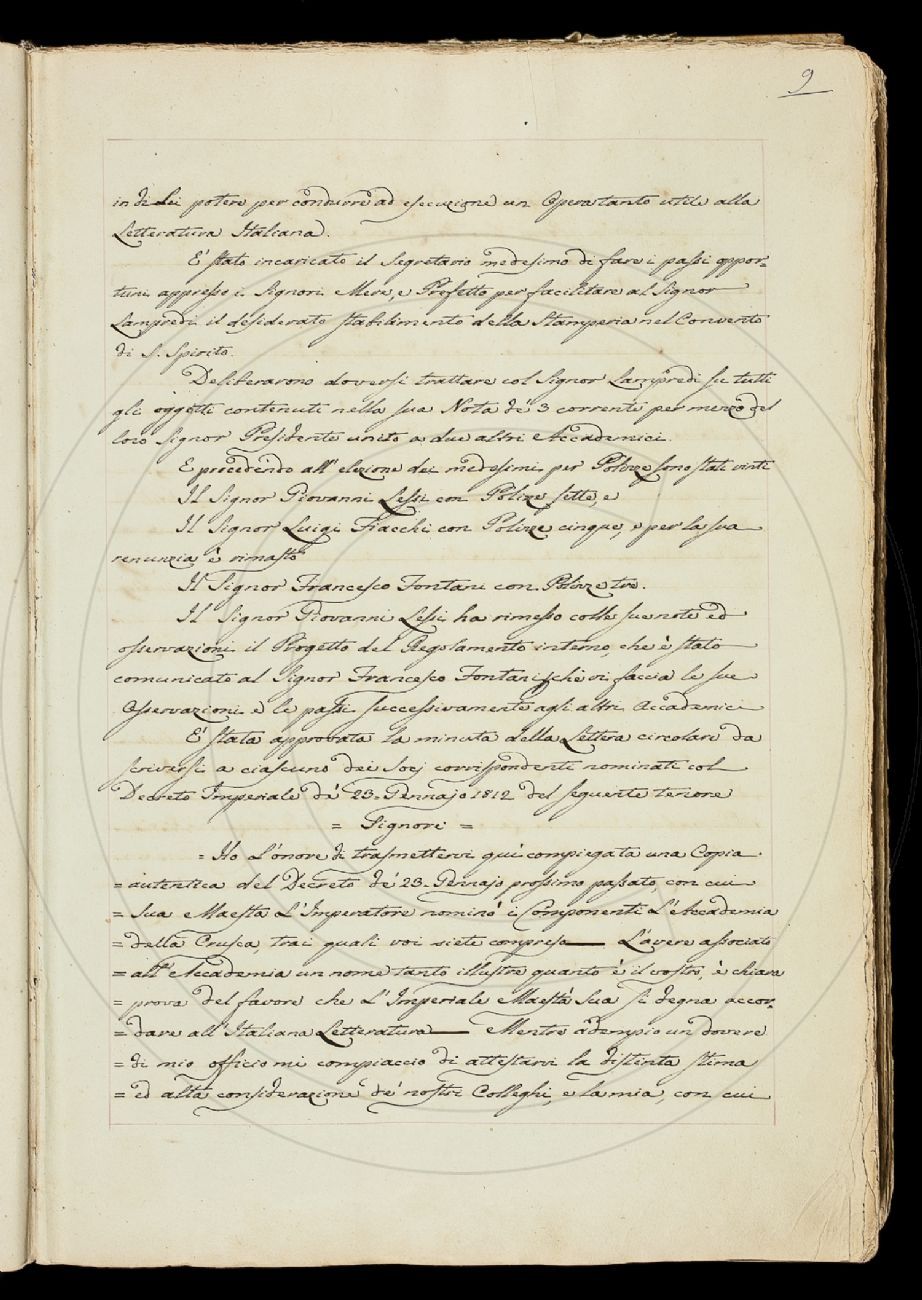 9
in di Lei potere per condurre ad esecuzione un Opera tanto utile alla
Letteratura Italiana.
E' stato incaricato il Segretario medesimo di fare i passi oppor=
tuni appresso i Signori Mere, e Profetto per facilitare al Signor
Lampredi il desiderato stabilimento della Stamperia nel Convento
di S. Spirito.
Deliberarono doversi trattare col Signor Lampredi su tutti
gli oggetti contenuti nella sua Nota de' 3 corrente per mezzo del
loro Signor Presidente unito a due altri Accademici.
E procedendo all' elezione dei medesimi per Polizze sono stati vinti
Il Signor Giovanni Lessi con Polizze sette, e
Il Signor Luigi Fiacchi con Polizze cinque, e per la sua
renunzia è rimasto
Il Signor Francesco Fontani con Polizze tre.
Il Signor Giovanni Lessi ha rimesso colle sue note ed
osservazioni il Progetto del Regolamento interno, che è stato
comunicato al Signor Francesco Fontani, chè vi faccia le sue
Osservazioni e le passi successivamente agli altri Accademici
E' stata approvata la minuta della Lettera circolare da
scriversi a ciascuno dei Socj corrispondenti nominati col
Decreto Imperiale de' 23. Gennajo 1812 del seguente tenore
= Signore =
= Ho L'onore di trasmettervi quì compiegata una Copia
= autentica del Decreto de' 23. Gennajo prossimo passato, con cui
= Sua Maestà L'Imperatore nominò i Componenti L'Accademia
= della Crusca, trai quali voi siete compreso — L'avere associato
= all' Accademia un nome tanto illustre quanto è il vostro, è chiara
= prova del favore che L'Imperiale Maestà Sua si degna accor=
= dare all' Italiana Letteratura — Mentre adempio un dovere
= di mio officio mi compiaccio di attestarvi la distinta stima
= ed alta considerazione de' nostri Colleghi, e la mia, con cui